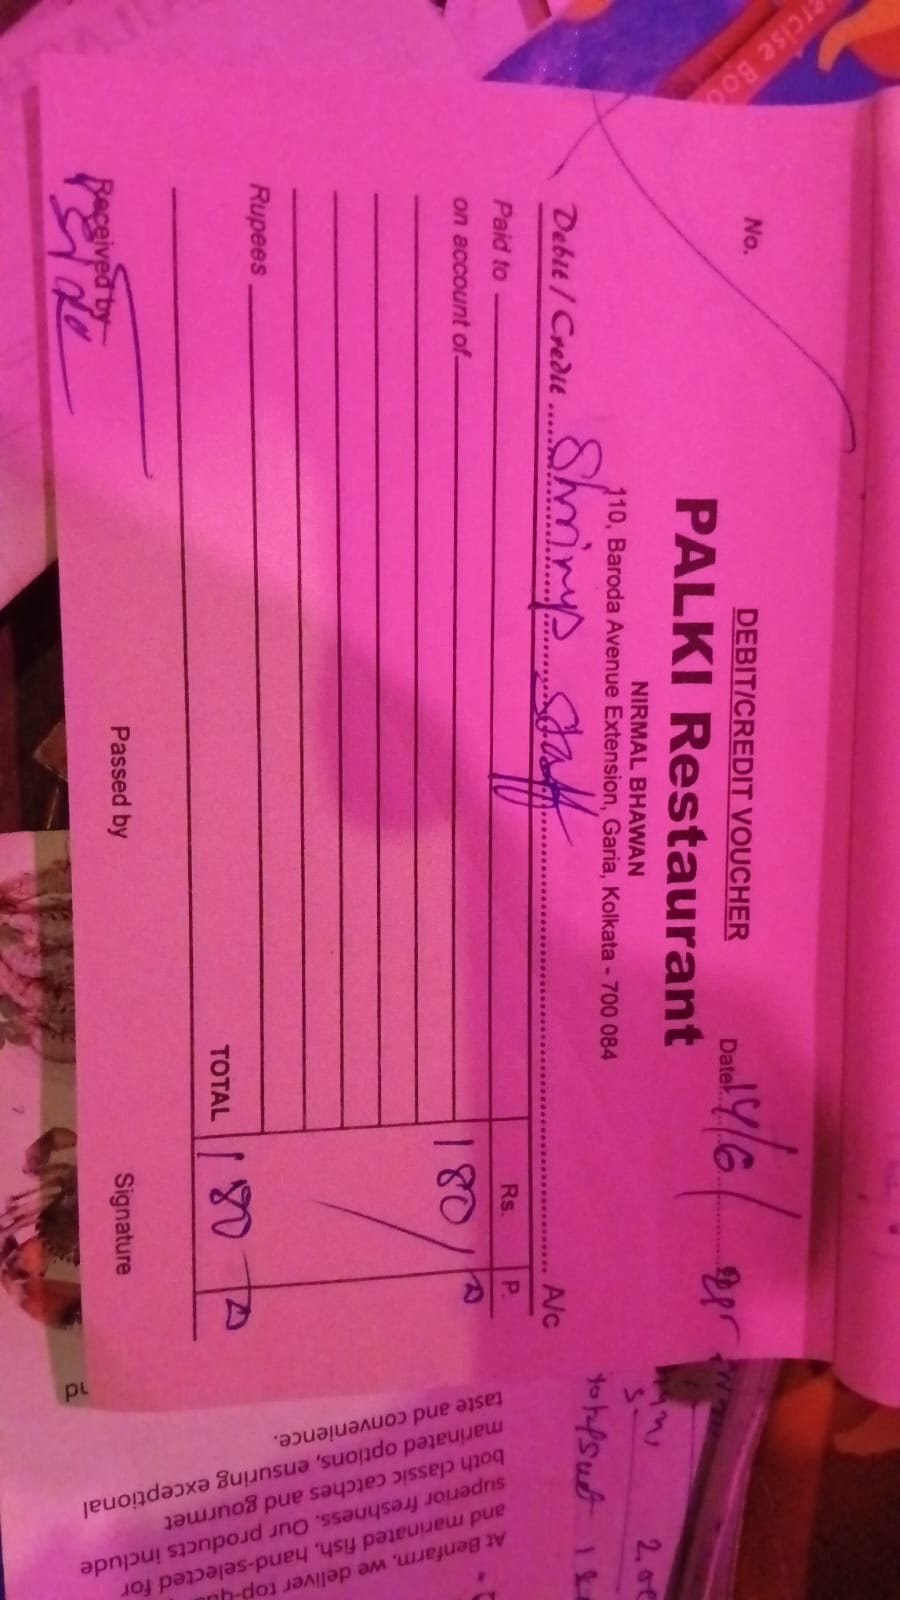 ercise Boo
No.
DEBIT/CREDIT VOUCHER
Date 14/6/
PALKI Restaurant
NIRMAL BHAWAN
110, Baroda Avenue Extension, Garia, Kolkata - 700 084
Debit / Credit Shrimp Staff A/c
Paid to
Rs. P.
on account of
180/
Rupees
TOTAL 180
Received by
Passed by
Signature
At Benfarm, we deliver
and marinated fish, hand-selected for
superior freshness. Our products include
both classic catches and gourmet
marinated options, ensuring exceptional
taste and convenience.